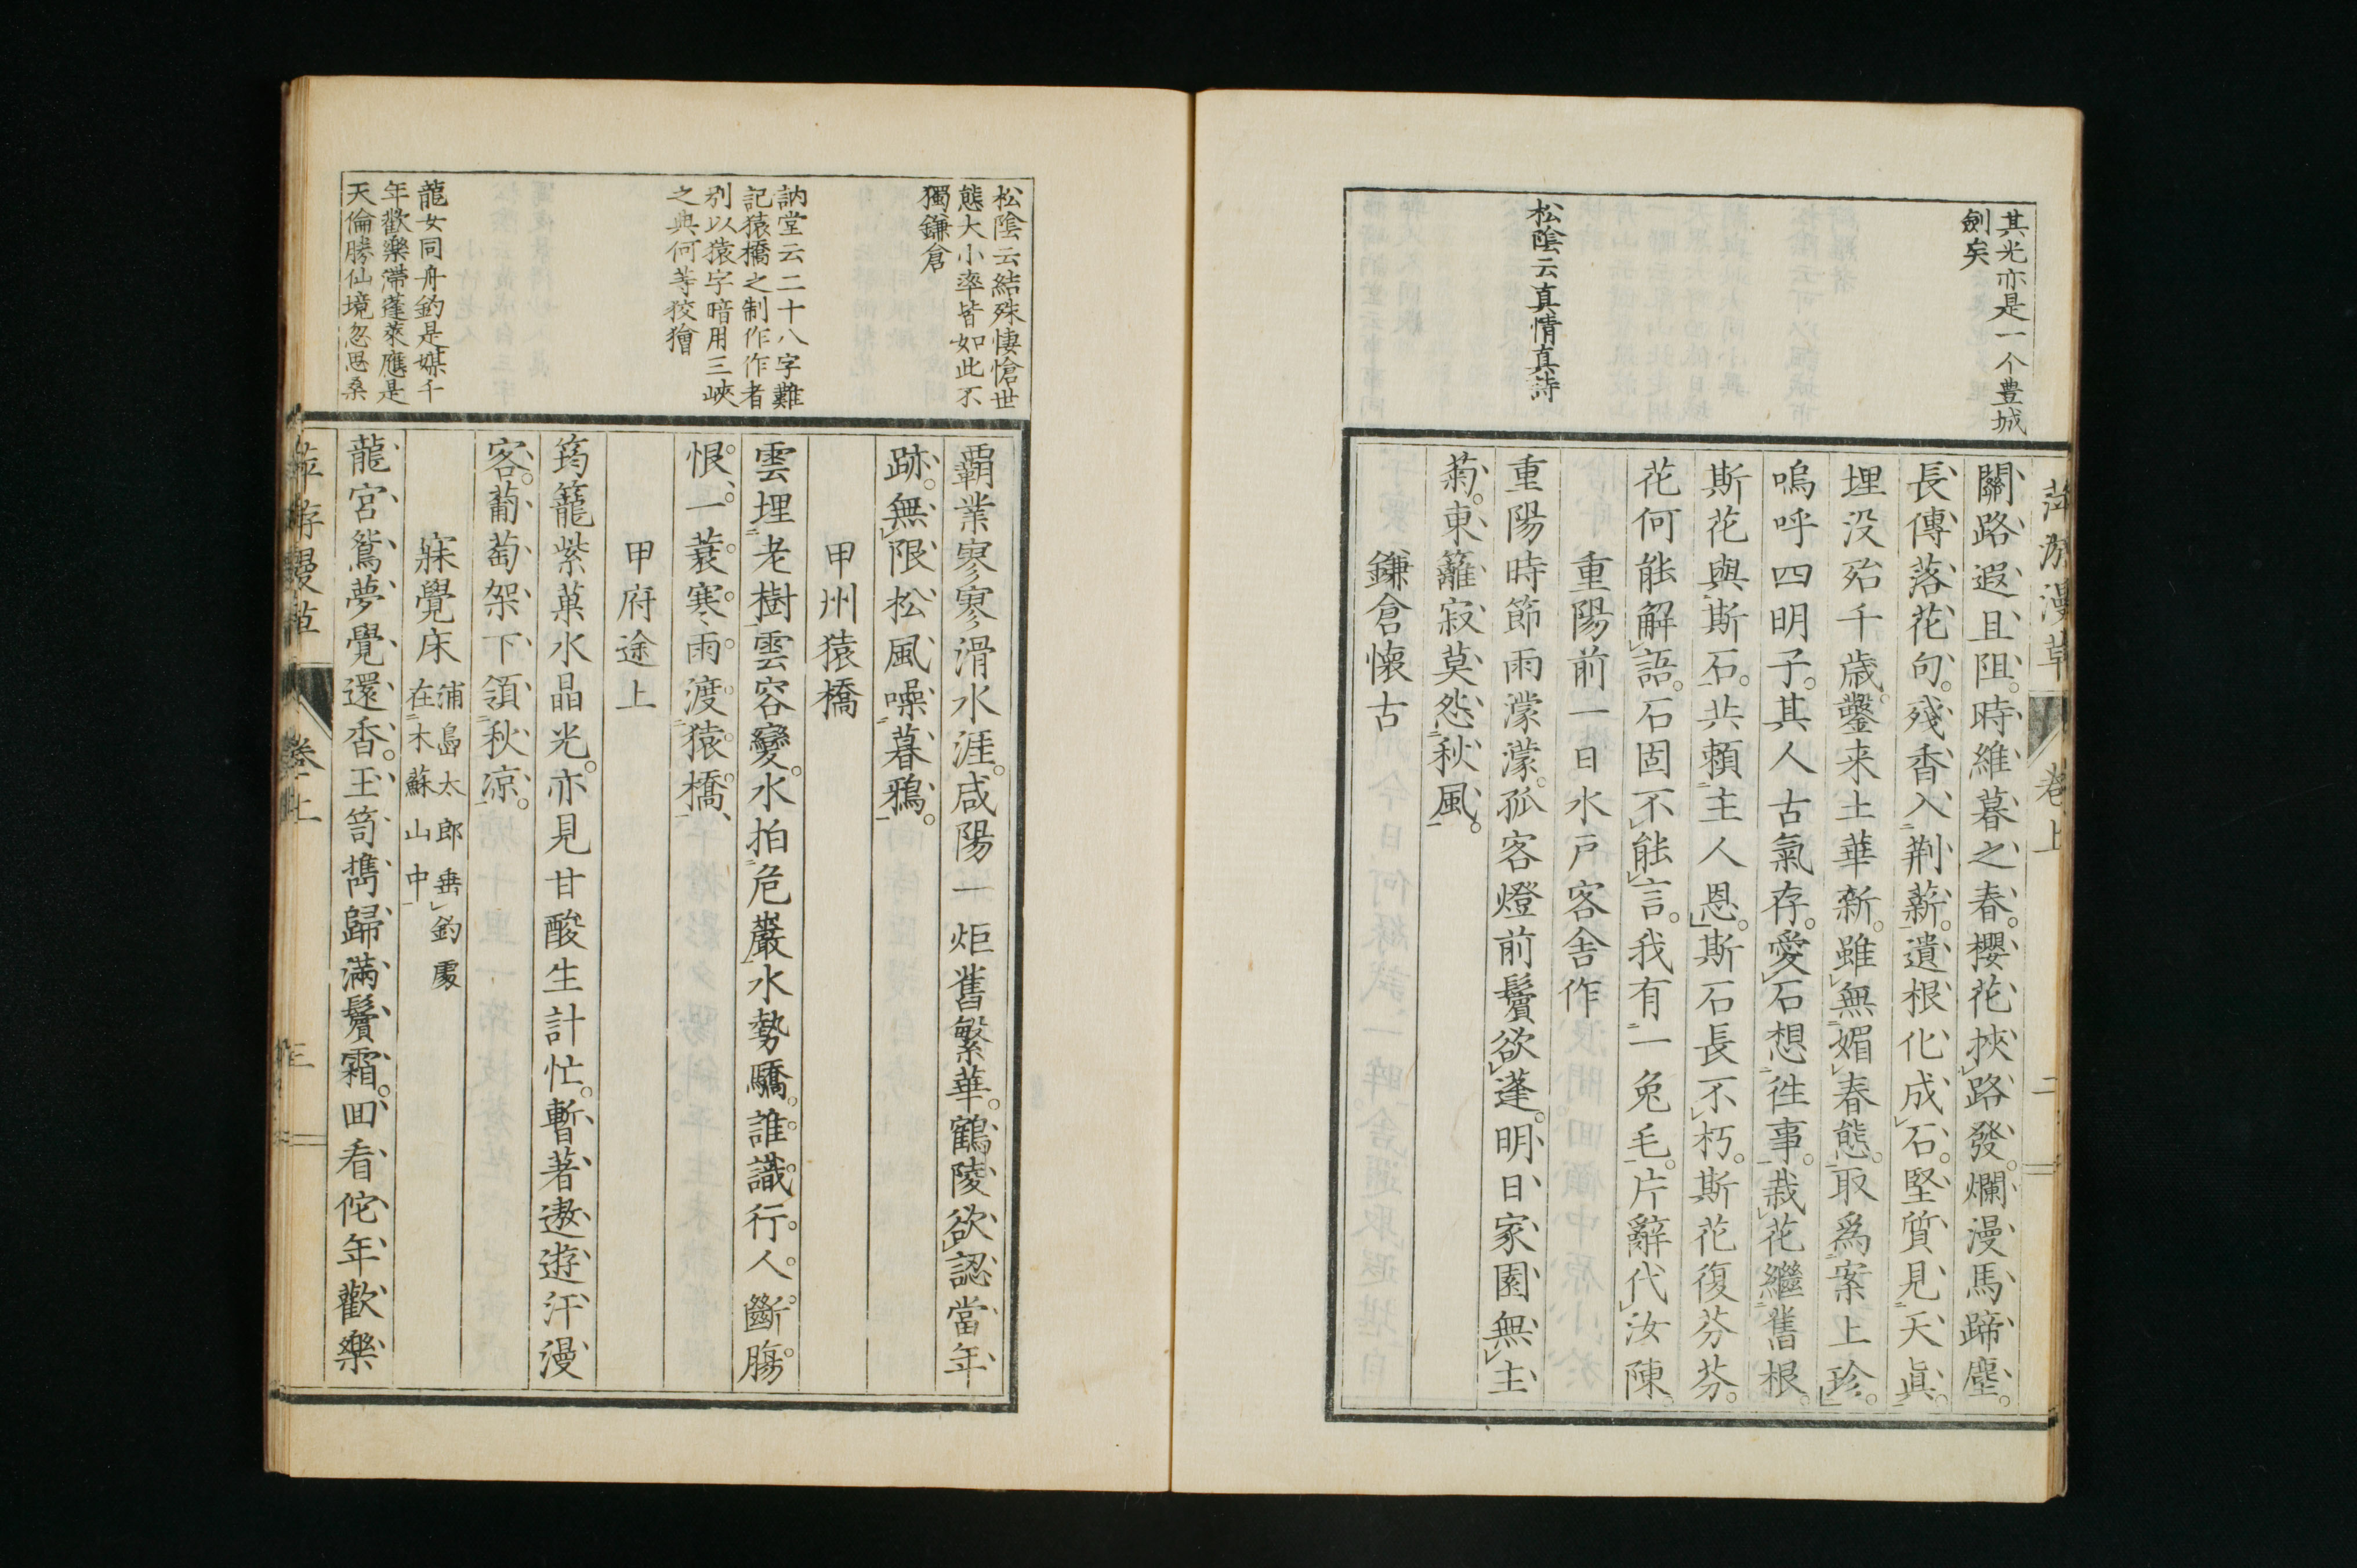 其光亦是一个豊城
劍矣
松陰云真情真詩
萍游漫草 卷上 二
關路遐且阻。時維暮之春。櫻花挾路發。爛漫馬蹄塵。
長傳落花句。殘香入荆薪。遺根化成石。堅質見天眞。
埋没殆千歳。鑿来土華新。雖無媚春態。取爲案上珍。
嗚呼四明子。其人古氣存。愛石想徃事。栽花繼舊根。
斯花與斯石。共頼主人恩。斯石長不朽。斯花復芬芬。
花何能解語。石固不能言。我有一兔毛。片辭代汝陳。
重陽前一日水戸客舎作
重陽時節雨濛濛。孤客燈前鬢欲蓬。明日家園無主
菊。東籬寂莫怨秋風。
鎌倉懷古
松陰云結殊悽愴世
態大小率皆如此不
獨鎌倉
訥堂云二十八字難
記猿橋之制作作者
别以猿字暗用三峽
之典何等狡獪
龍女同舟釣是媒千
年歡樂滯蓬萊應是
天倫勝仙境忽思桑
覇業寥寥滑水涯。咸陽一炬舊繁華。鶴陵欲認當年
跡。無限松風噪暮鴉。
甲州猿橋
雲埋老樹雲容變。水拍危巖水勢驕。誰識行人斷膓
恨。一蓑寒雨渡猿橋。
甲府途上
筠籠紫菓水晶光。亦見甘酸生計忙。暫著遨遊汗漫
客。葡萄架下領秋凉。
寐覺床 浦島太郎垂釣處
在木蘇山中
龍宮鴛夢覺還香。玉笥擕歸滿鬢霜。囬看佗年歡樂
萍游漫草 卷上 三